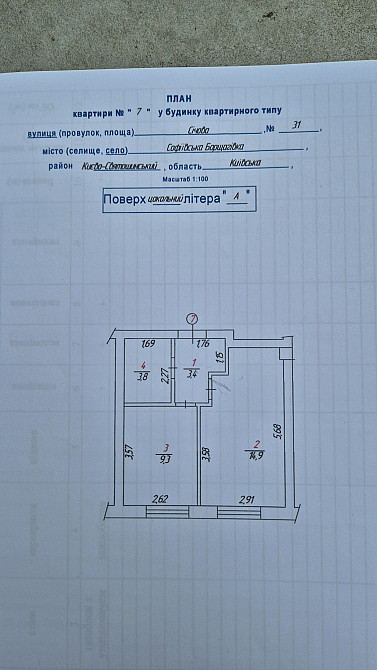 ПЛАН
квартири № " 7 " у будинку квартирного типу
вулиця (провулок, площа) Січова , № 31 ,
місто (селище, село) Софіївська Борщагівка ,
район Києво-Святошинський , область Київська ,
Масштаб 1:100
Поверх цокольний літера " А "
7
1.69 1.76
4
3,8
2.27
1
3.4
1.15
3.57
3
9,3
3.58
2
14,9
5,68
2.62 2.91